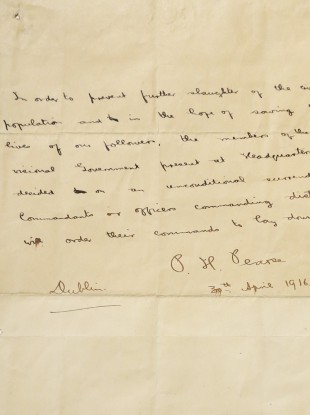 In order to prevent further slaughter of the
population and in the hope of saving
lives of our followers, the members of the
visional Government present at Headquarters
decided on an unconditional surrend
Commandants or officers commanding dist
will order their commands to lay down
P. H. Pearse
Dublin. 30th April 1916